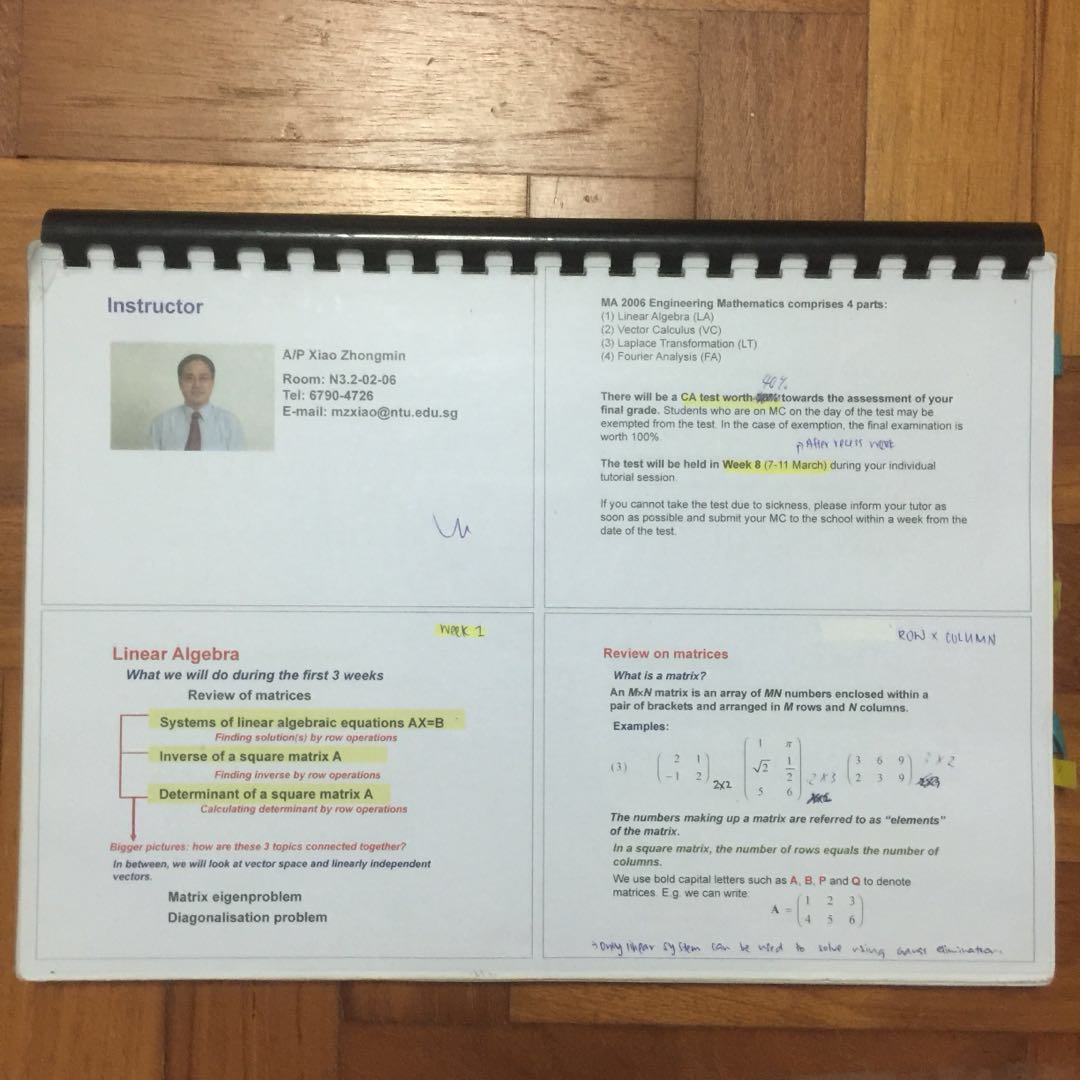 Instructor
A/P Xiao Zhongmin
Room: N3.2-02-06
Tel: 6790-4726
E-mail: mzxiao@ntu.edu.sg
MA 2006 Engineering Mathematics comprises 4 parts:
(1) Linear Algebra (LA)
(2) Vector Calculus (VC)
(3) Laplace Transformation (LT)
(4) Fourier Analysis (FA)
40%
There will be a CA test worth towards the assessment of your
final grade. Students who are on MC on the day of the test may be
exempted from the test. In the case of exemption, the final examination is
worth 100%.
After recess week
The test will be held in Week 8 (7-11 March) during your individual
tutorial session.
If you cannot take the test due to sickness, please inform your tutor as
soon as possible and submit your MC to the school within a week from the
date of the test.
Week 1
Linear Algebra
What we will do during the first 3 weeks
Review of matrices
Systems of linear algebraic equations AX=B
Finding solution(s) by row operations
Inverse of a square matrix A
Finding inverse by row operations
Determinant of a square matrix A
Calculating determinant by row operations
Bigger pictures: how are these 3 topics connected together?
In between, we will look at vector space and linearly independent
vectors.
Matrix eigenproblem
Diagonalisation problem
ROW x COLUMN
Review on matrices
What is a matrix?
An M×N matrix is an array of MN numbers enclosed within a
pair of brackets and arranged in M rows and N columns.
Examples:
1 π
2 1 √2 1/2 3 6 9 3 x 2
(3) -1 2 2x2 5 6 2 x 3 2 3 9
The numbers making up a matrix are referred to as “elements”
of the matrix.
In a square matrix, the number of rows equals the number of
columns.
We use bold capital letters such as A, B, P and Q to denote
matrices. E.g. we can write:
A = 1 2 3
4 5 6
→ Only linear system can be used to solve using gauss elimination.